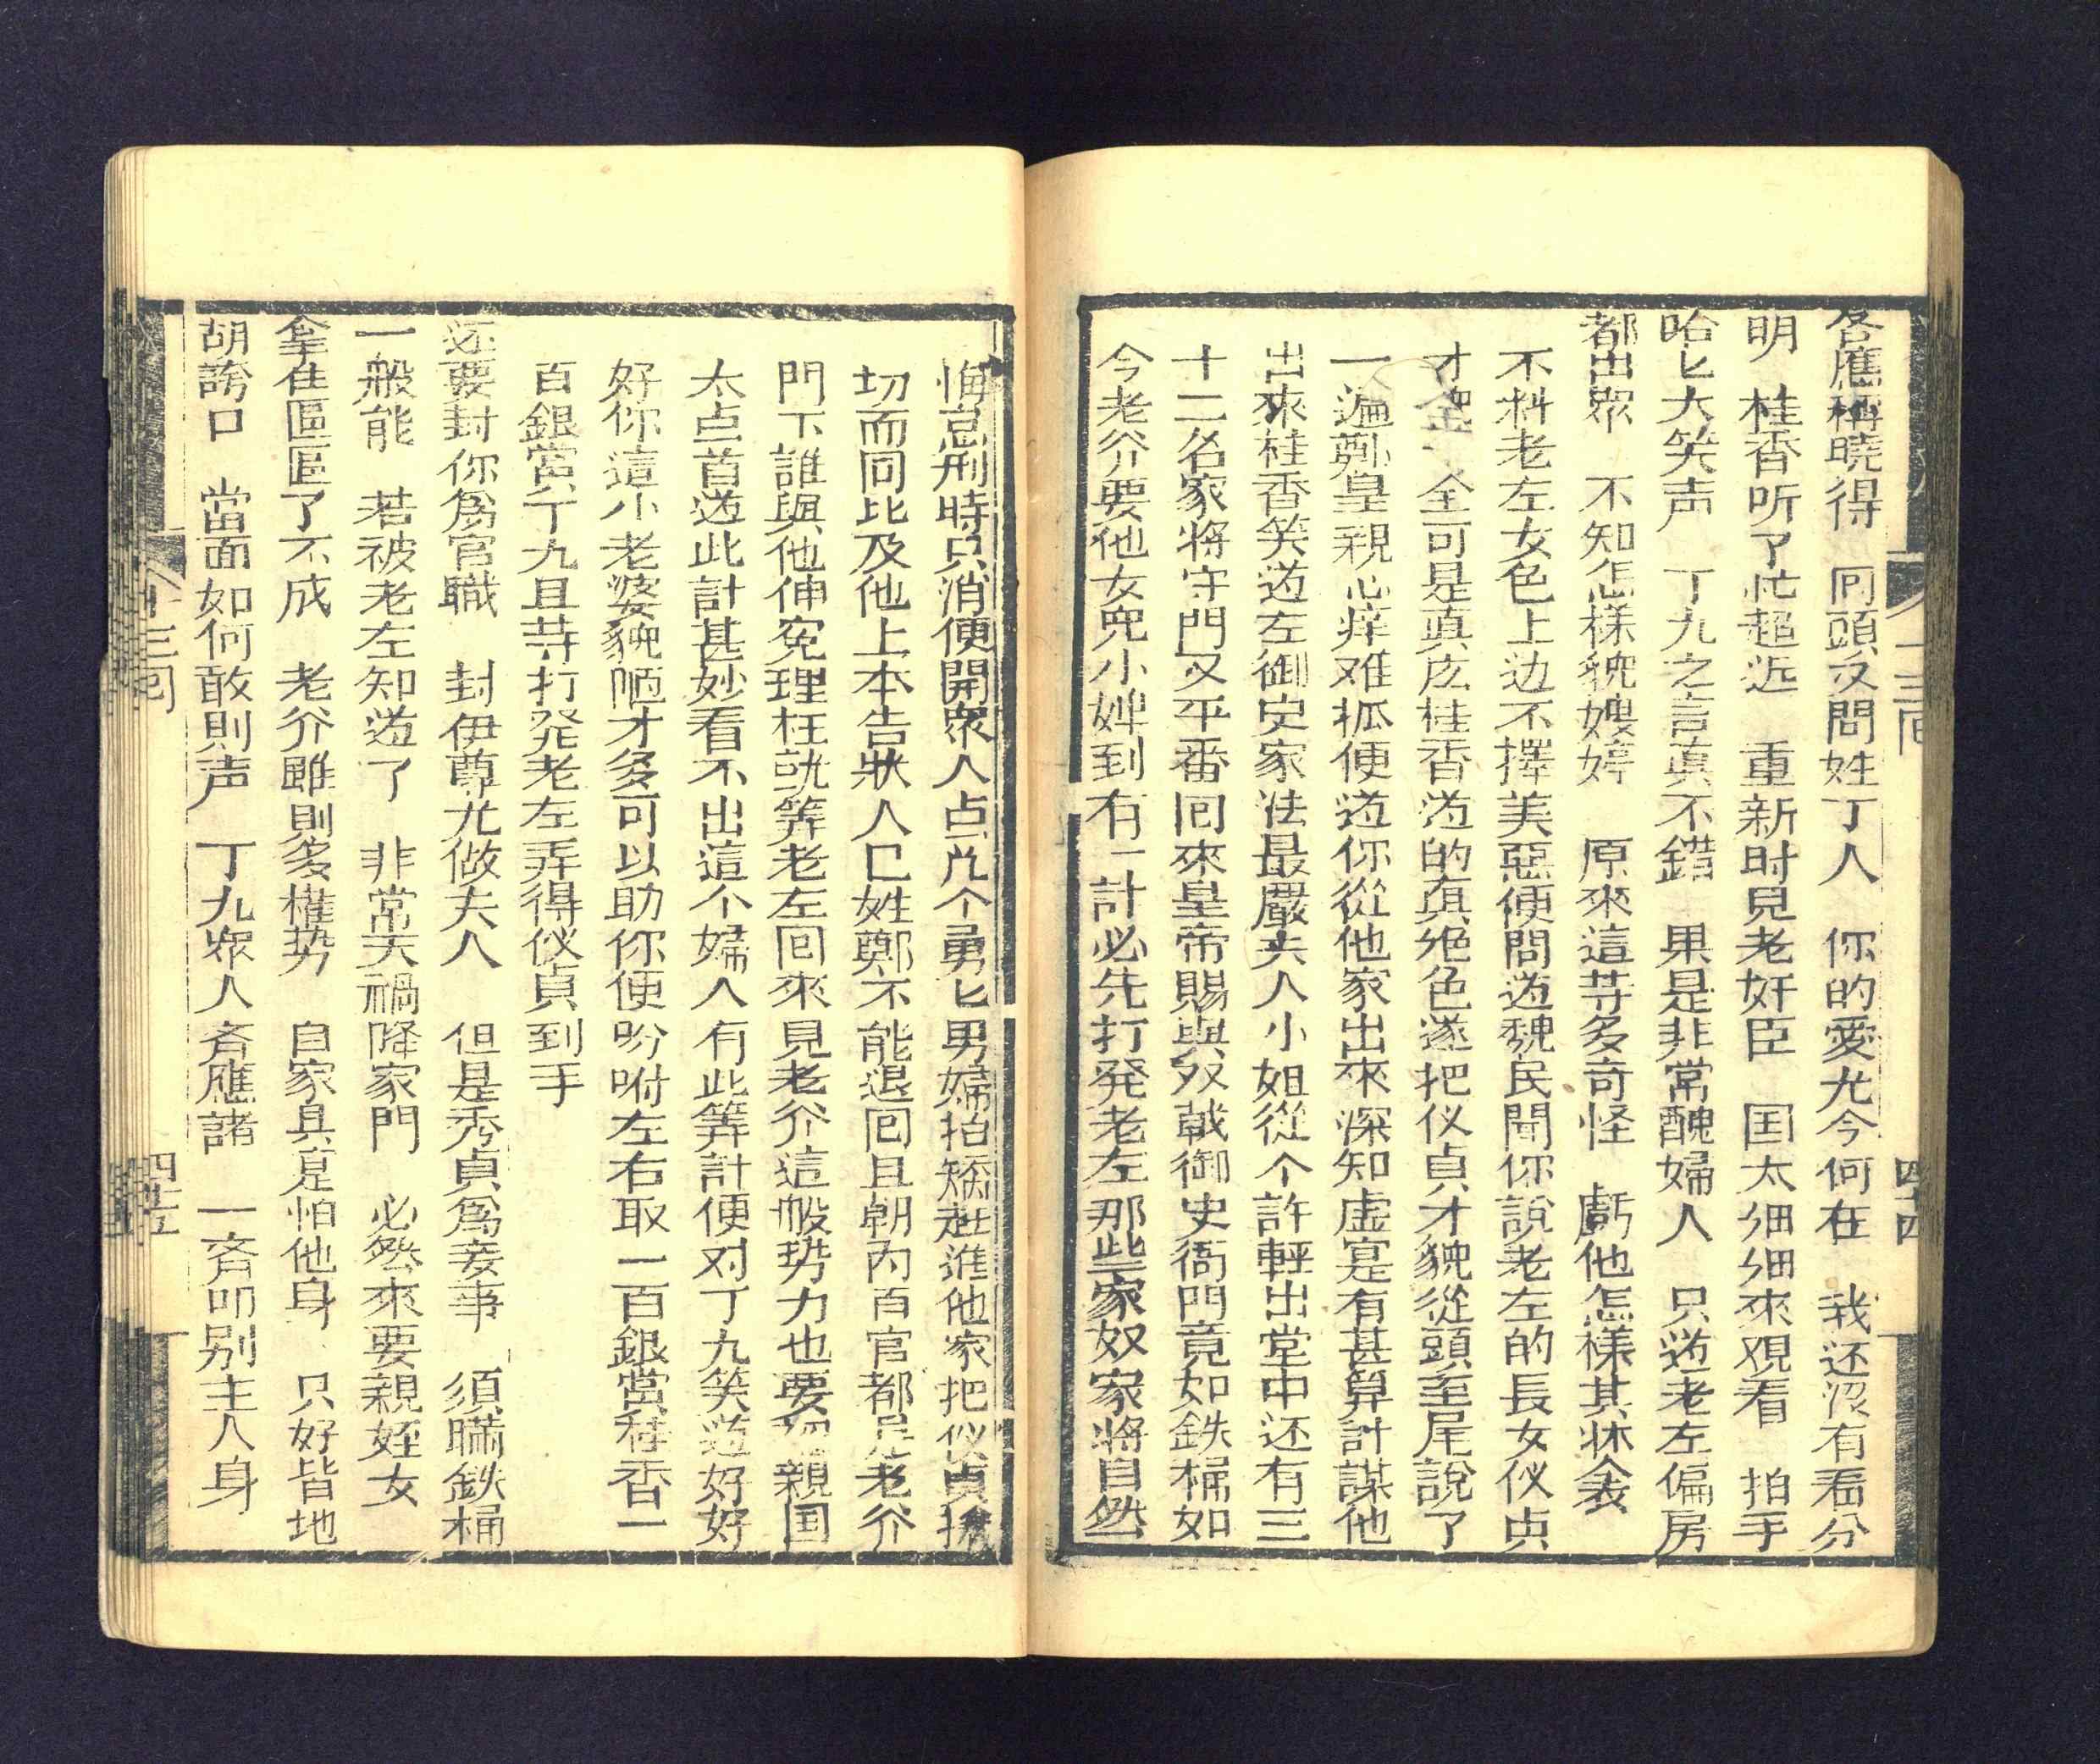 答應稱曉得　囘頭又問姓丁人　你的愛尤今何在　我还没有看分
明　桂香听了忙趨近　重新时見老奸臣　国太细细來观看　拍手
哈匕大笑声　丁九之言真不錯　果是非常醜婦人　只道老左偏房
都出眾　不知怎様貌嫂婷　原來這䒭多奇怪　虧他怎樣其牀衾
不料老左女色上边不擇美惡便問道魏民聞你說老左的長女仪贞
才貌　全可是真広桂香道的真绝色遂把仪貞才貌從頭至尾說了
一遍鄭皇親心痒难抓便道你從他家出來深知虚寔有甚算計謀他
出來桂香笑道左御史家法最嚴夫人小姐從不許輕出堂中还有三
十二名家將守門又平番囘來皇帝賜與殳戟御史衙門竟如鉄桶如
今老爷要他女兒小婢到有一計必先打発老左那些家奴家將自然
十三囘
四十四
悔怠刑時只消便開眾人点几个勇匕男婦抬矯赶進他家把仪貞搶
切而囘比及他上本告狀人已姓鄭不能退囘且朝内百官都是老爷
門下誰與他伸冤理枉就筭老左囘來見老爷這般势力也要認親国
太点首道此計甚妙看不出這个婦人有此筭計便对丁九笑道好好
好你這小老婆貌陋才多可以助你便吩咐左右取二百銀賞桂香一
百銀賞丁九且䒭打発老左弄得仪貞到手
还要封你爲官職　封伊尊尤做夫人　但是秀貞爲妾事　須瞞鉄桶
一般能　若被老左知道了　非常天禍降家門　必然來要親姪女
拿住區區了不成　老爷雖則多權势　自家具寔怕他身　只好皆地
胡誇口　當面如何敢則声　丁九眾人斉應諾　一斉叩别主人身
十三囘
四十五